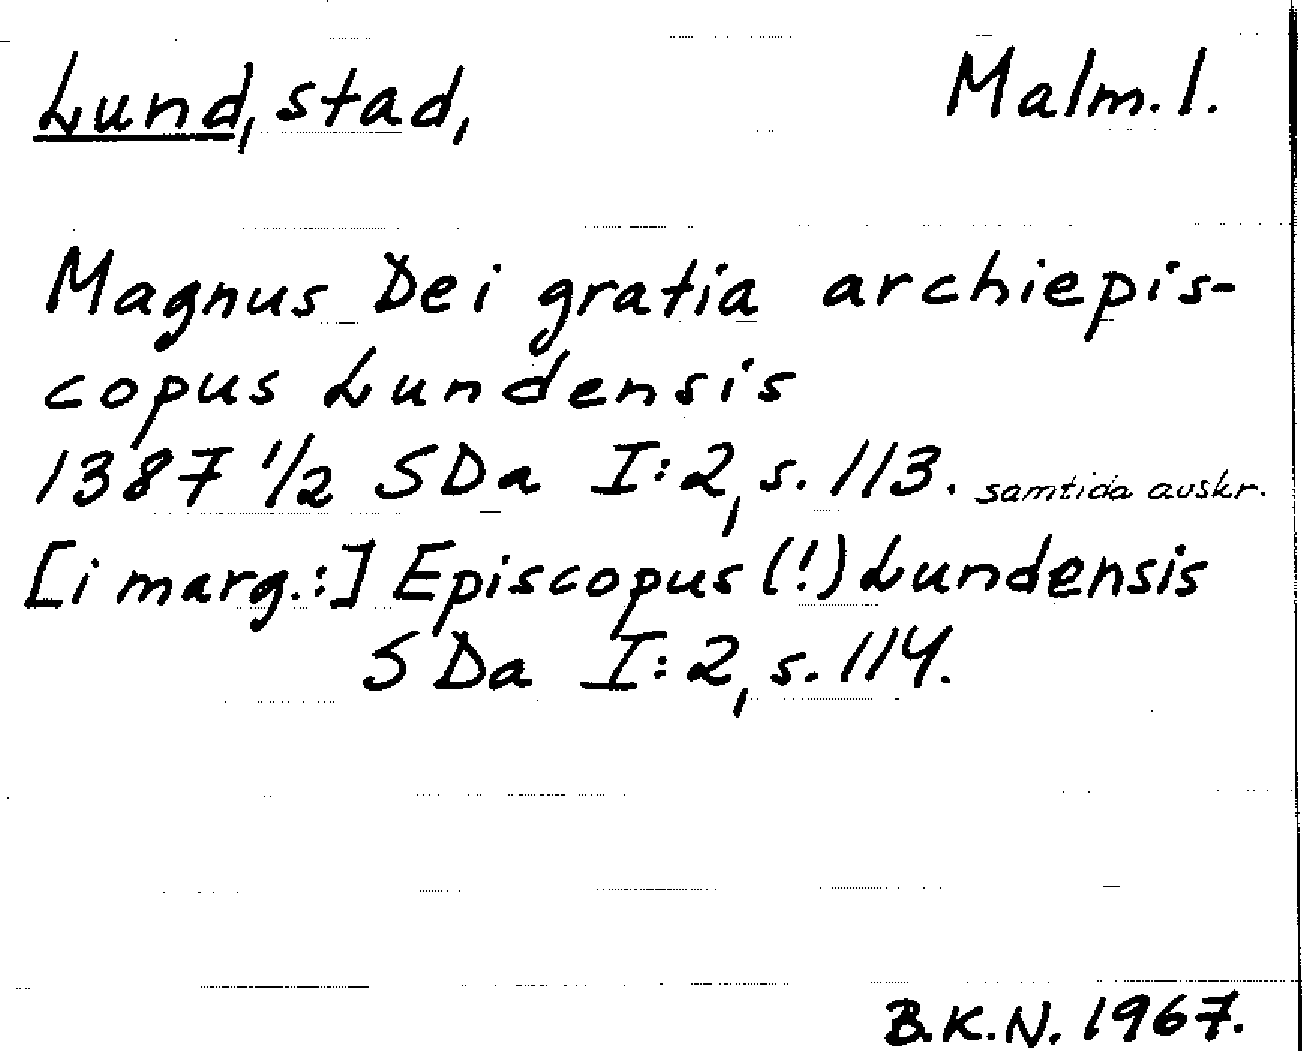 Lund, stad, Malm. l.
Magnus Dei gratia archiepis-
copus Lundensis
1387 1/2 SDa I:2, s. 113. samtida avskr.
[i marg.:] Episcopus (!) Lundensis
SDa I:2, s. 114.
B.K.N. 1967.